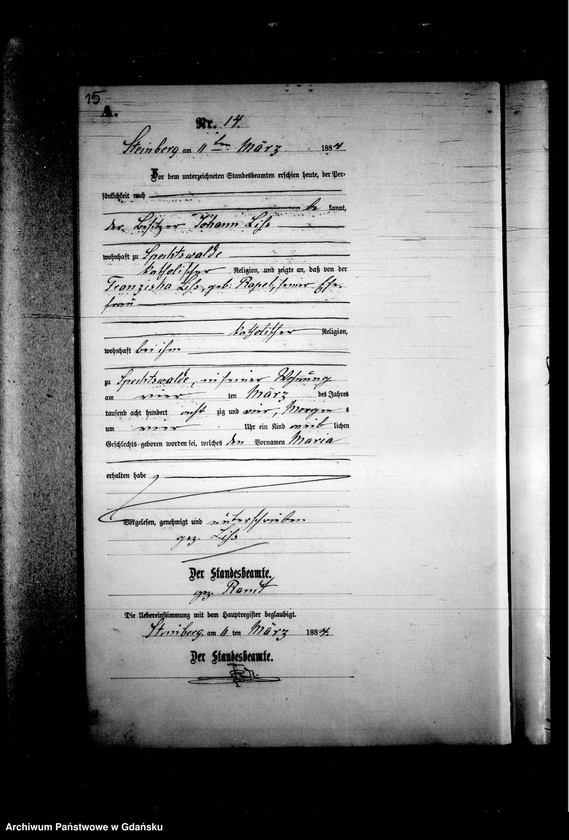 15
A.
Nr. 14.
Steinberg am 11ten März 1884
Vor dem unterzeichneten Standesbeamten erschien heute, der Per-
sönlichkeit nach
be kannt,
der Besitzer Johann Liss
wohnhaft zu Spechtswalde
katholischer Religion, und zeigte an, daß von der
Franziska Liss, geb. Rapel, seiner Ehe-
frau
katholischer Religion,
wohnhaft bei ihm
zu Spechtswalde, in seiner Wohnung
am vier ten März des Jahres
tausend acht hundert acht zig und vier, Morgens
um vier Uhr ein Kind weib lichen
Geschlechts geboren worden sei, welches den Vornamen Maria
erhalten habe
Vorgelesen, genehmigt und unterschrieben
gez. Liss
Der Standesbeamte.
gez.
Die Uebereinstimmung mit dem Hauptregister beglaubigt.
Steinberg am 11 ten März 1884.
Der Standesbeamte.
Archiwum Państwowe w Gdańsku